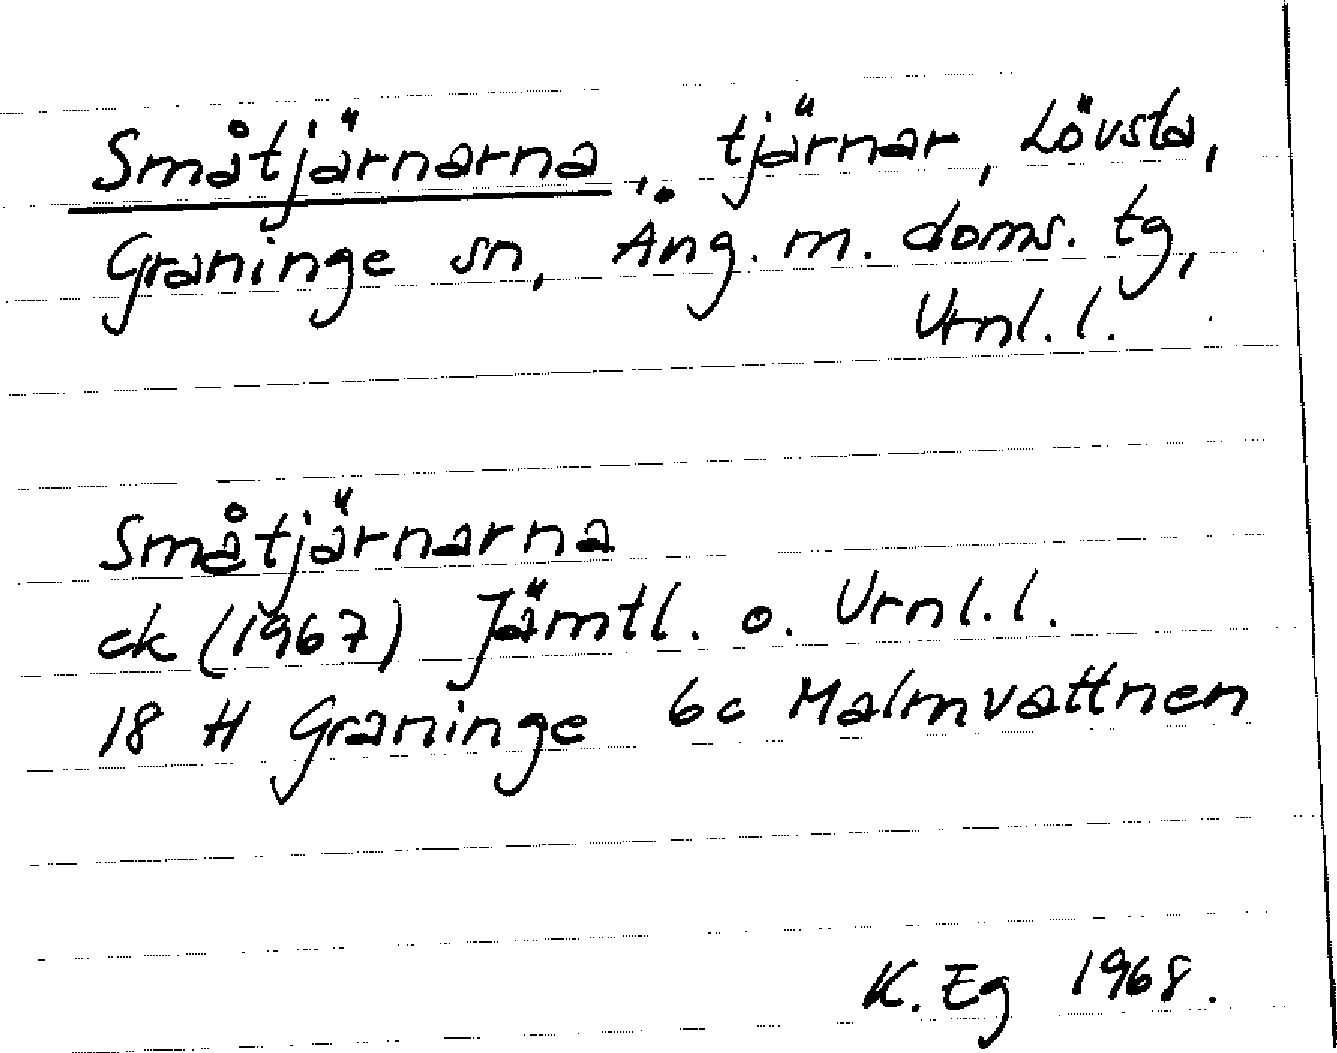 Småtjärnarna, tjärnar, Lövsta,
Graninge sn, Ång. m. doms. tg,
Vrnl. l.
Småtjärnarna
ek (1967) Jämtl. o. Vrnl. l.
18 H Graninge 6c Malmvattnen
K. Eg 1968.